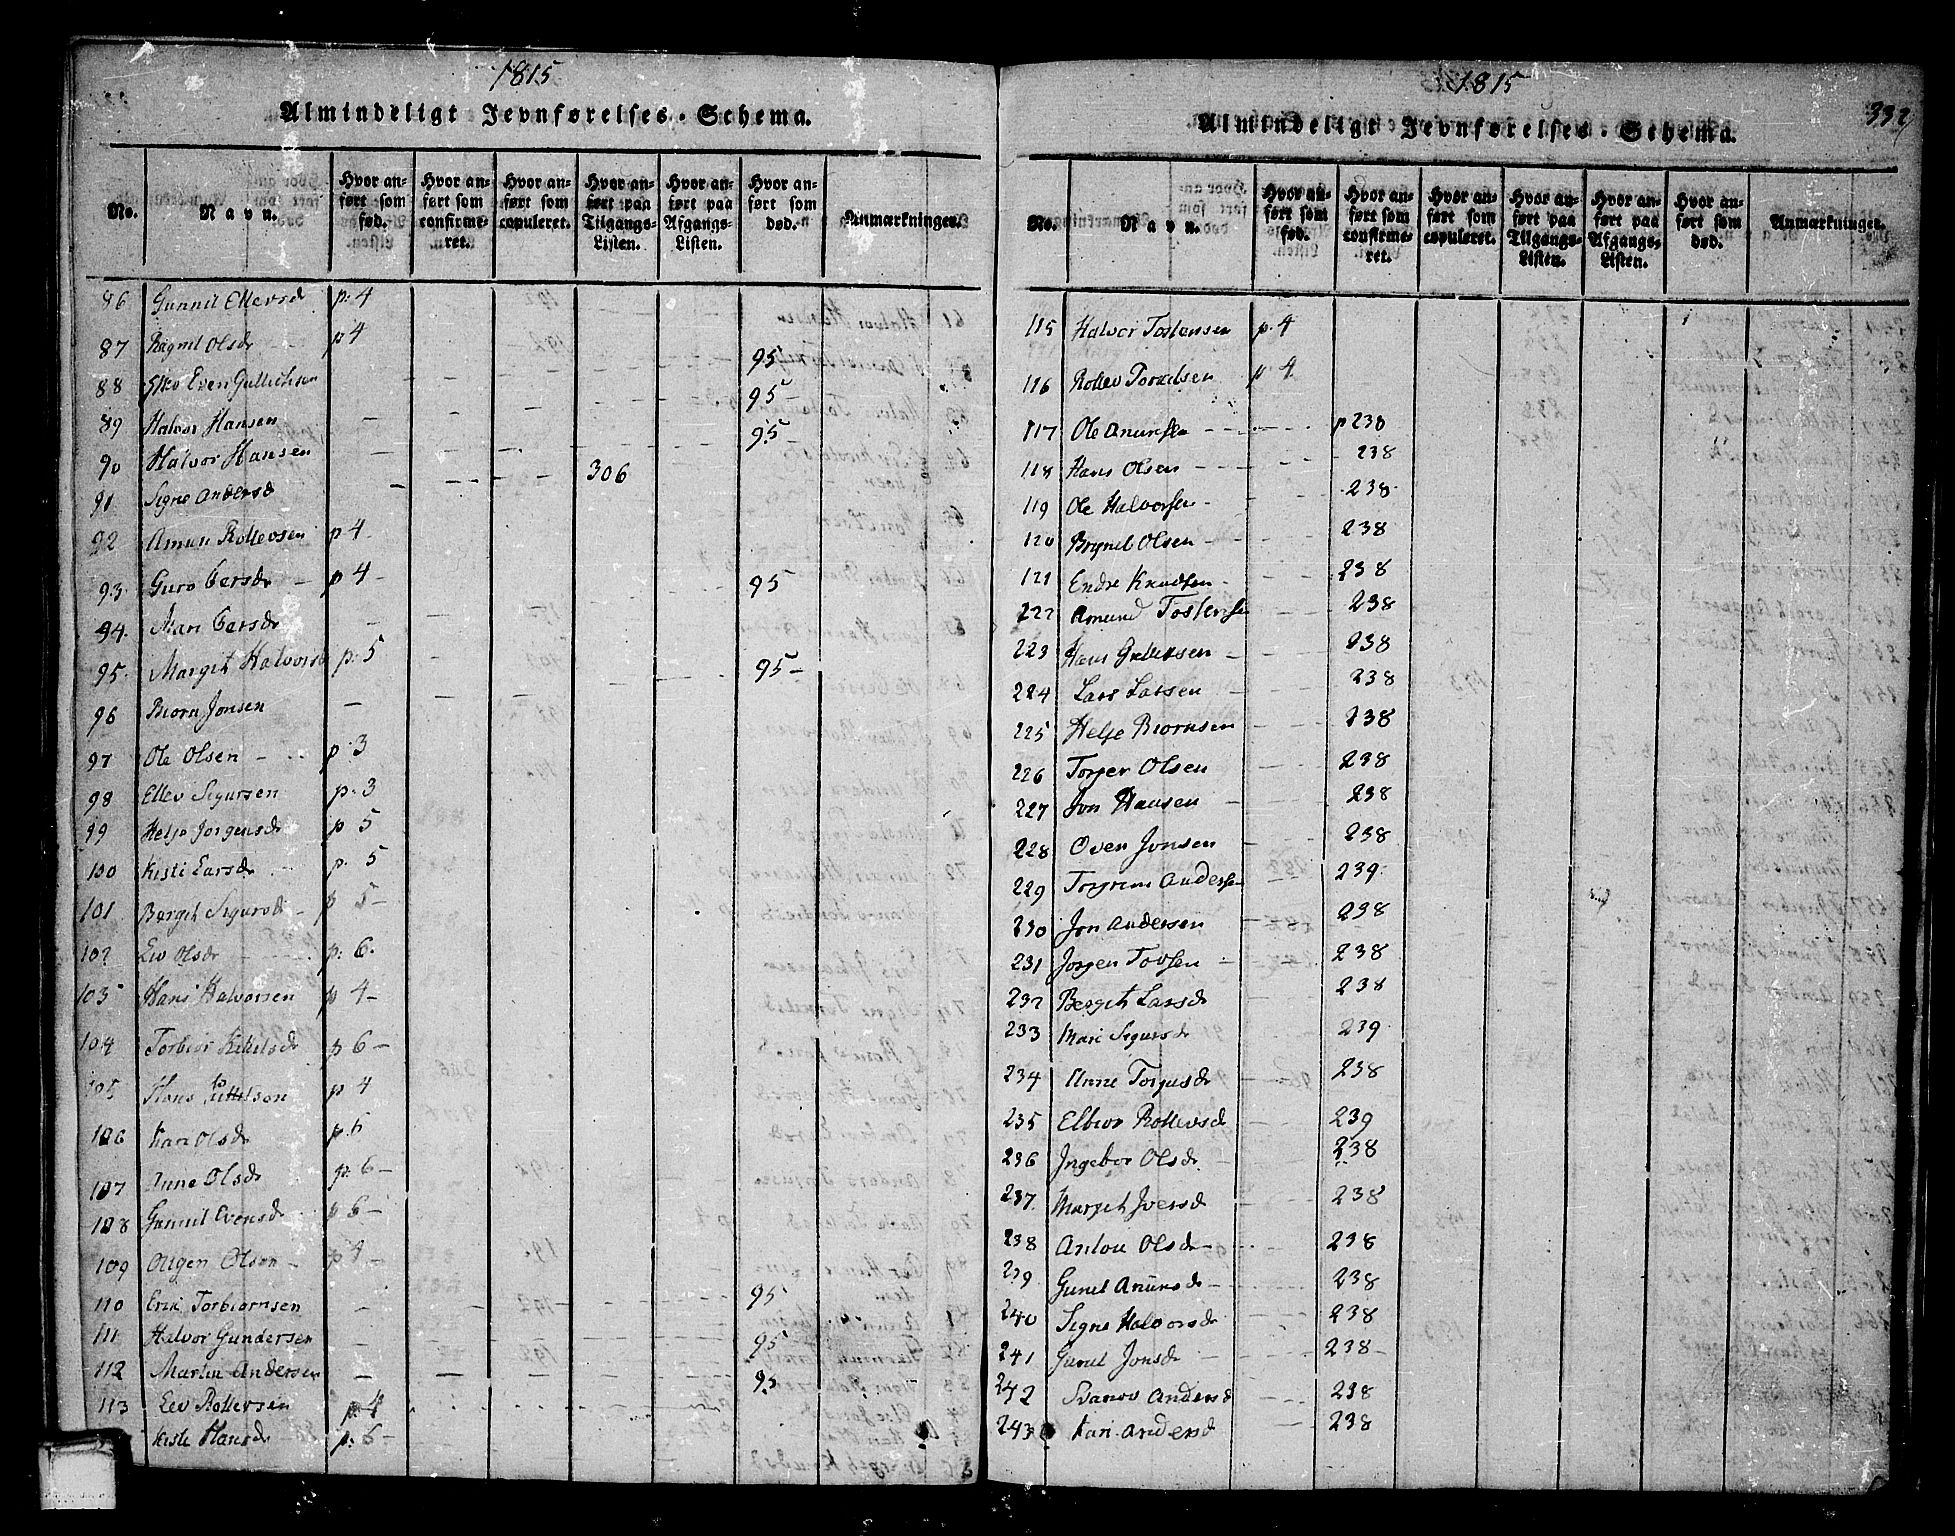 1815
Almindeligt Jevnførelses-Schema.
No. Navn. Hvor anført som fød. Hvor anført som confirmeret. Hvor anført som copuleret. Hvor anført paa Tilgangs-Listen. Hvor anført paa Afgangs-Listen. Hvor anført som død. Anmærkninger.
86 Gunnil Ellevsd p. 4
87 Ragnil Olsdr p 4
88 Even Gullichsen 95
89 Halvor Hansen 95
90 Halvor Hansen 95
91 Signe Andersd 306
92 Amun Rollevsen p 4
93 Guro Iversdr p 4
94 Mari Iversdr 95
95 Margit Halvorsd p. 5
96 Biorn Jonsen 95
97 Ole Olsen p. 3
98 Ellev Sigursen p. 3
99 Helje Jorgensdr p 5
100 Kisti Larsdr p. 5
101 Bergit Sigursd p 5
102 Liv Olsdr p. 6
103 Hans Halvorsen p 4
104 Torbior Kittelsdr p 6
105 Hans Kittelsen p 4
106 Kari Olsdr p. 6
107 Anne Olsdr p. 6
108 Gunnil Evensdr p 6
109 Olsen p 4
110 Erik Torbiornsen 95
111 Halvor Gundersen 95
112 Martin Andersen 95
113 Lev Rollevsen p 4
Kisti Hansdr p. 6
1815
332
Almindeligt Jevnførelses-Schema.
No. Navn. Hvor anført som fød. Hvor anført som confirmeret. Hvor anført som copuleret. Hvor anført paa Tilgangs-Listen. Hvor anført paa Afgangs-Listen. Hvor anført som død. Anmærkninger.
115 Halvor Tostensen p. 4
116 Rollev Torkelsen p 4
117 Ole Anunsen p 238
118 Hans Olsen 238
119 Ole Halvorsen 238
120 Brynil Olsen 238
121 Endre Knudsen 238
222 Amund Tostensen 238
223 Hans 238
224 Lars Larsen 238
225 Helje Biornsen 238
226 Torger Olsen 238
227 Jon Hansen 238
228 Oven Jonsen 238
229 Torgrim Andersen 239
230 Jon Andersen 238
231 Jorgen Tovsen 238
232 Bergit Larsdr 238
233 Mari Sigursdr 239
234 Anne Torgusdr 238
235 Elbior Rollevsdr 239
236 Ingebor Olsdr 238
237 Margit Iversdr 238
238 Anlou Olsdr 238
239 Gunil Anunsdr 238
240 Signe Halvorsdr 238
241 Gunil Jonsdr 238
242 Svanov Andersd 238
243 Kari Andersd 238